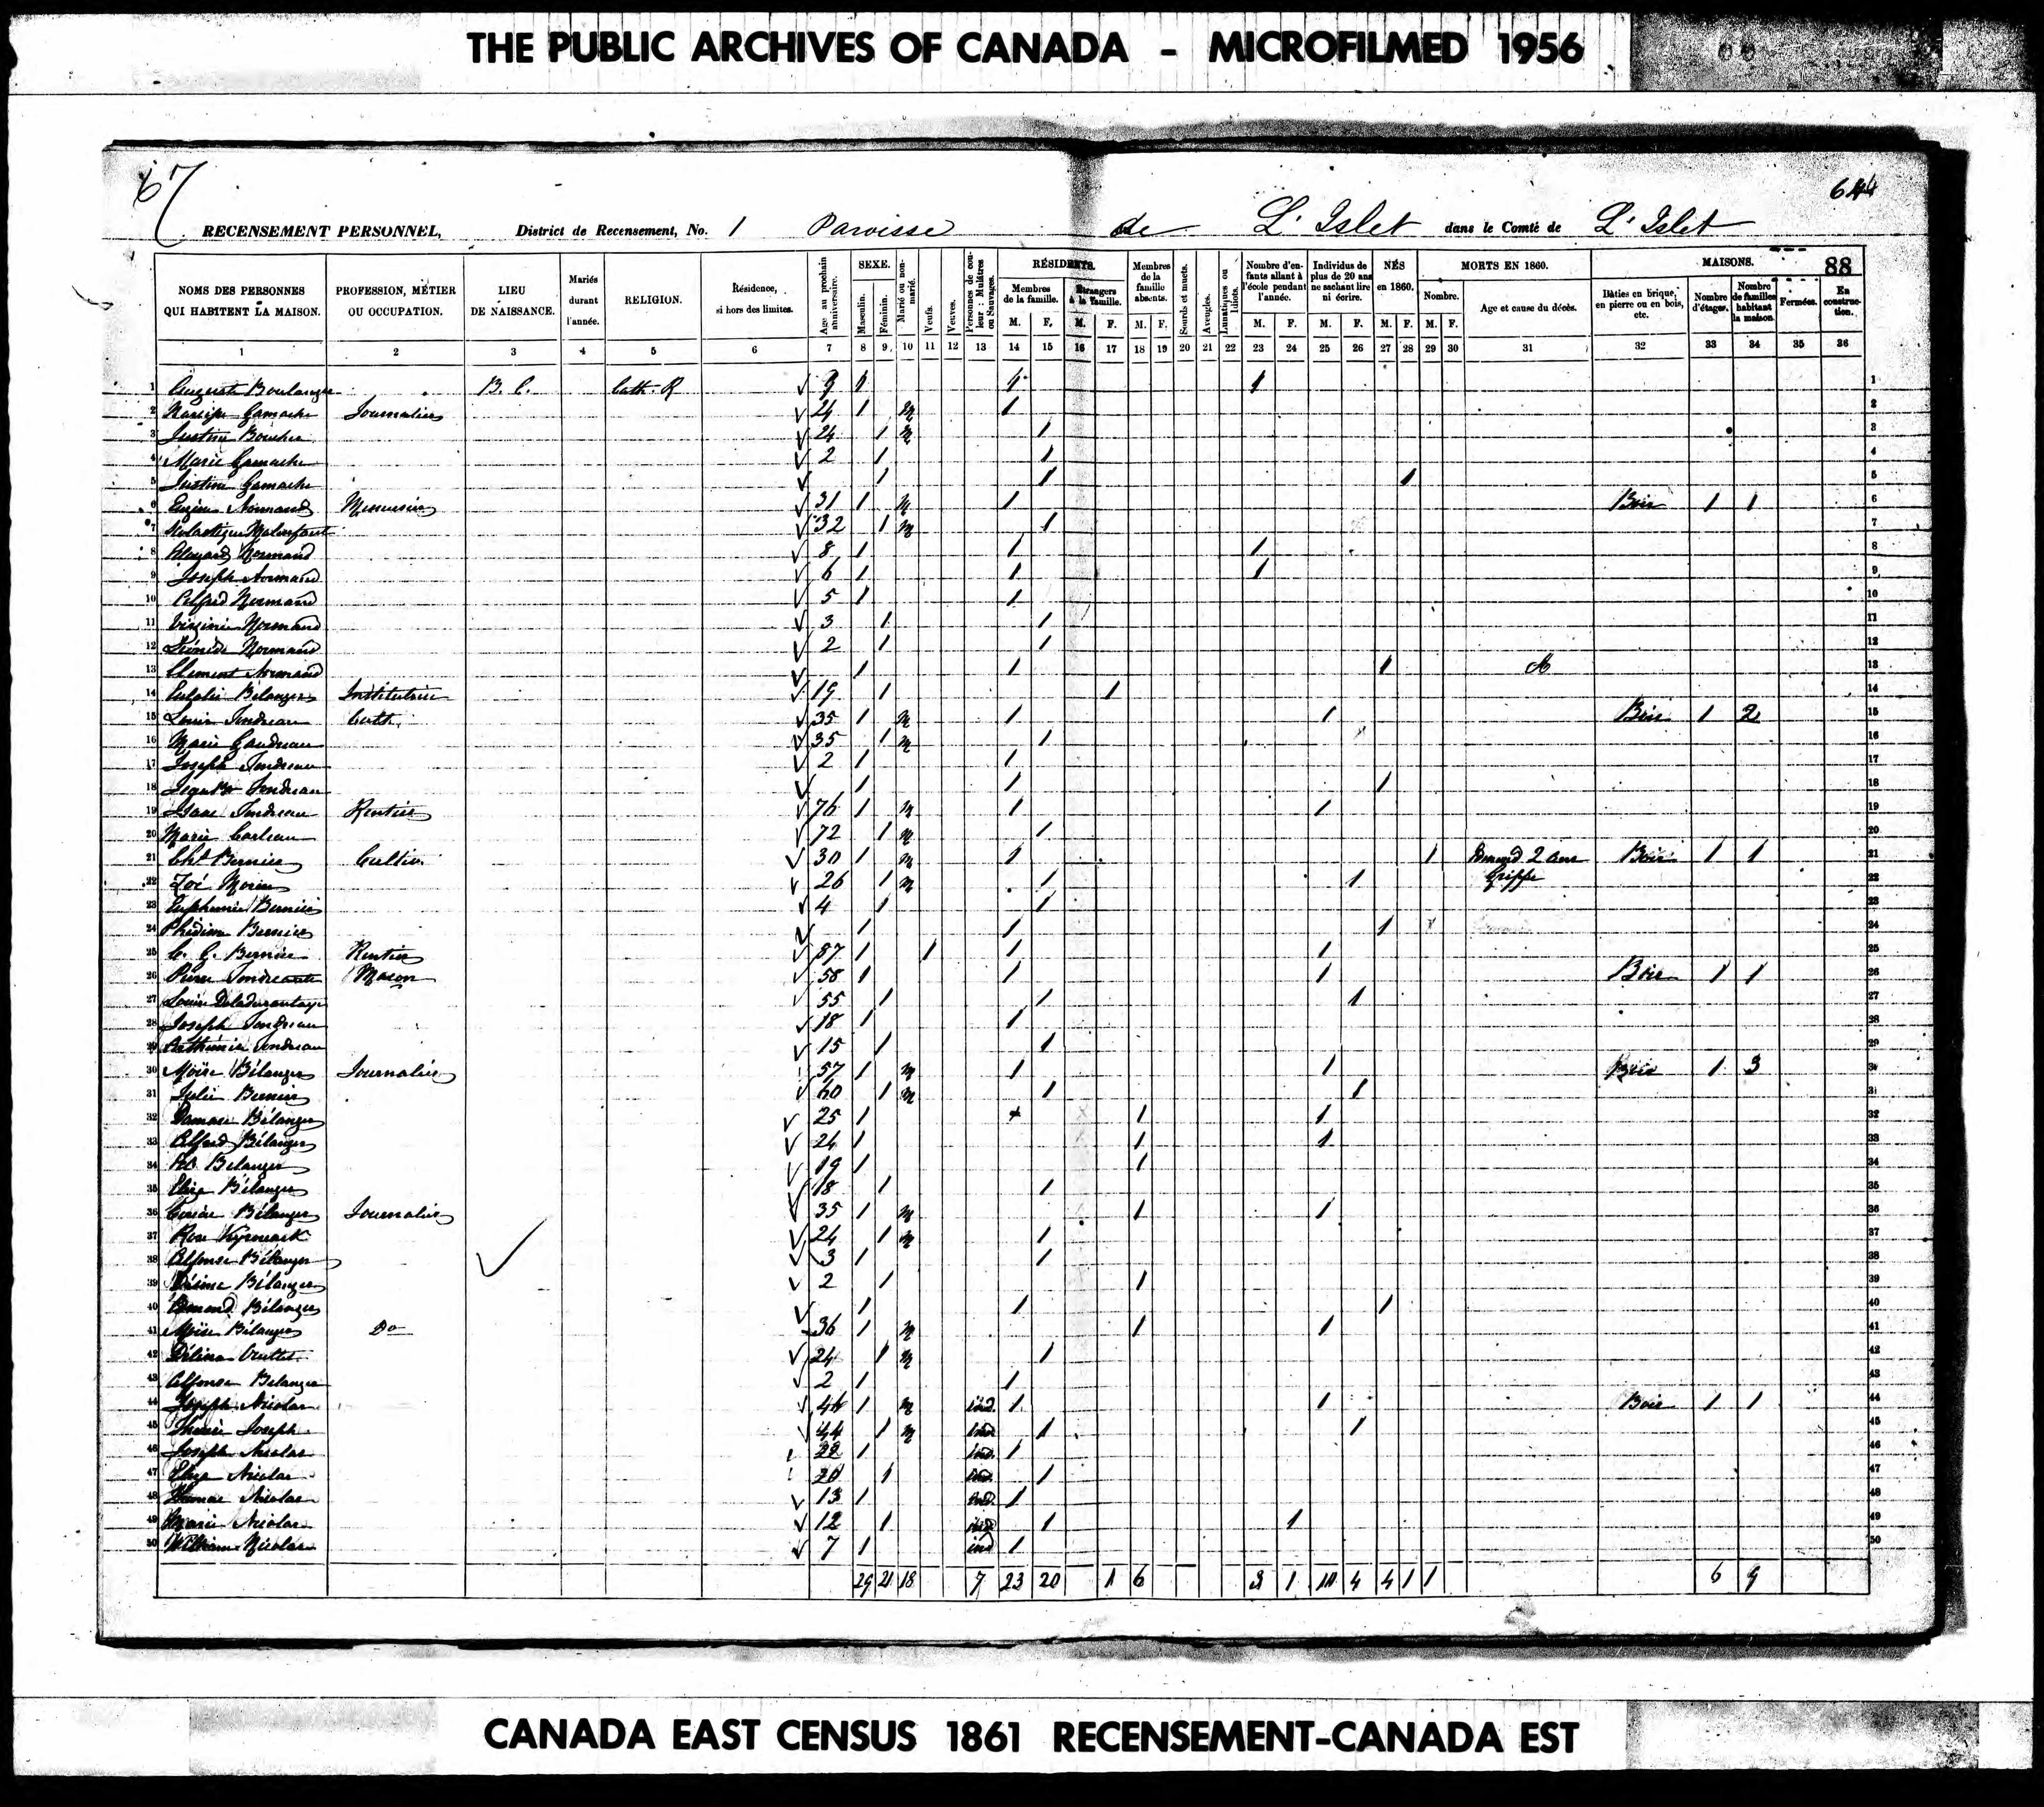 THE PUBLIC ARCHIVES OF CANADA - MICROFILMED 1956
67
644
RECENSEMENT PERSONNEL, District de Recensement, No. 1 Paroisse de L'Islet dans le Comté de L'Islet
88
NOMS DES PERSONNES QUI HABITENT LA MAISON. PROFESSION, MÉTIER OU OCCUPATION. LIEU DE NAISSANCE. Mariés durant l'année. RELIGION. Résidence, si hors des limites. Age au prochain anniversaire. SEXE. Masculin. Féminin. Marié ou non-marié. Veufs. Veuves. Personnes de couleur: Mulâtres ou Sauvages. RÉSIDENTS. Membres de la famille. M. F. Etrangers à la famille. M. F. Membres de la famille absents. M. F. Sourds et muets. Aveugles. Lunatiques ou Idiots. Nombre d'enfants allant à l'école pendant l'année. M. F. Individus de plus de 20 ans ne sachant lire ni écrire. M. F. NÉS en 1860. M. F. MORTS EN 1860. Nombre. M. F. Age et cause du décès. MAISONS. Bâties en brique, en pierre ou en bois, etc. Nombre d'étages. Nombre de familles habitant la maison. Fermées. En construction.
1 2 3 4 5 6 7 8 9 10 11 12 13 14 15 16 17 18 19 20 21 22 23 24 25 26 27 28 29 30 31 32 33 34 35 36
1 Auguste Boulanger B. C. Cath. R 9 1 1 1 1
2 Narcisse Gamache Journalier 24 1 M 1 2
3 Justine Boucher 24 1 M 1 3
4 Marie Gamache 2 1 1 4
5 Justine Gamache 1 1 1 5
6 Eugène Normand Menuisier 31 1 M 1 Bois 1 1 6
7 Scholastique Malenfant 32 1 M 1 7
8 Normand 8 1 1 1 8
9 Joseph Normand 6 1 1 1 9
10 Alfred Normand 5 1 1 10
11 Virginie Normand 3 1 1 11
12 Léonide Normand 2 1 1 12
13 Clément Normand 1 1 1 13
14 Eulalie Bélanger Institutrice 19 1 1 14
15 Louis Tondreau Cult. 35 1 M 1 1 Bois 1 2 15
16 Marie Gaudreau 35 1 M 1 16
17 Joseph Tondreau 2 1 1 17
18 Jean Bte Tondreau 1 1 1 18
19 Isaac Tondreau Rentier 76 1 M 1 1 19
20 Marie 72 1 M 1 20
21 Chs Bernier Cultiv. 30 1 M 1 1 2 ans Bois 1 1 21
22 Zoé Morin 26 1 M 1 1 Grippe 22
23 Euphemie Bernier 4 1 1 23
24 Bernier 1 1 1 24
25 C. G. Bernier Rentier 87 1 1 1 1 25
26 Pierre Tondreau Maçon 58 1 1 1 Bois 1 1 26
27 Louise Deladurantaye 55 1 1 1 27
28 Joseph Tondreau 18 1 1 28
29 Tondreau 15 1 1 29
30 Moïse Bélanger Journalier 57 1 M 1 1 Bois 1 3 30
31 Julie Bernier 60 1 M 1 1 31
32 Damase Bélanger 25 1 1 1 32
33 Alfred Bélanger 24 1 1 1 33
34 Bélanger 19 1 1 34
35 Elise Bélanger 18 1 1 35
36 Bélanger Journalier 35 1 M 1 1 36
37 Rose 24 1 M 1 37
38 Alfonse Bélanger 3 1 1 38
39 Bélanger 2 1 1 39
40 Bélanger 1 1 1 40
41 Moïse Bélanger Do 36 1 M 1 1 41
42 Délina 24 1 M 1 42
43 Alfonse Bélanger 2 1 1 43
44 Joseph Nicolas 44 1 M ind. 1 1 Bois 1 1 44
45 Joseph 44 1 M ind 1 1 45
46 Joseph Nicolas 22 1 ind. 1 46
47 Eliza Nicolas 20 1 ind. 1 47
48 Thomas Nicolas 13 1 ind. 1 48
49 Marie Nicolas 12 1 ind 1 1 49
50 William Nicolas 7 1 ind 1 50
29 21 18 7 23 20 1 6 3 1 10 4 4 1 1 6 9
CANADA EAST CENSUS 1861 RECENSEMENT-CANADA EST